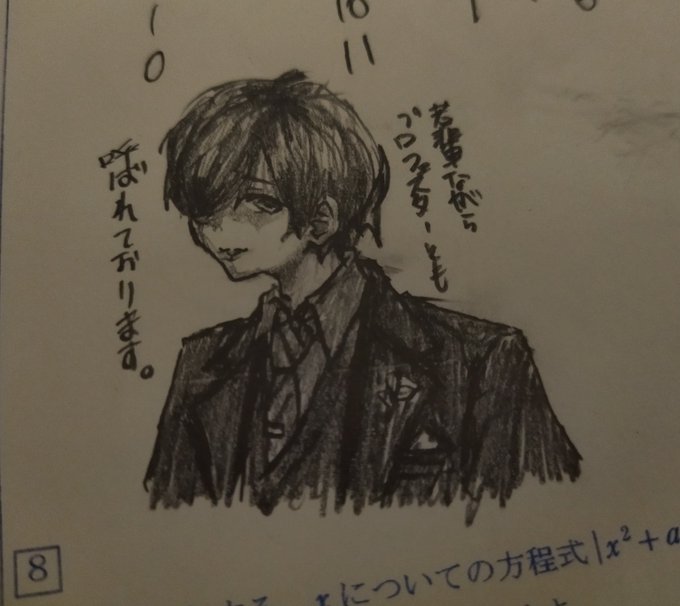 10
0
11
若輩ながら
プロフェスターとも
呼ばれております。
8
xについての方程式|x²+a